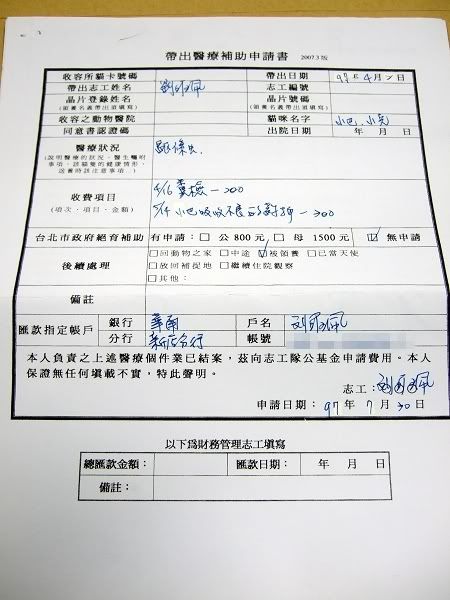 帶出醫療補助申請書 2007.3版
收容所貓卡號碼 帶出日期 97年4月 日
帶出志工姓名 志工編號
晶片登錄姓名 (領養名義帶出這填寫) 晶片號碼 (領養名義帶出這填寫)
收容之動物醫院 貓咪名字 小巴、小
同意書認證碼 出院日期 年 月 日
醫療狀況
(說明醫療的狀況、醫生囑咐
事項、該貓隻的健康情形、
送養時該注意事項...)
收費項目 4/16 糞檢—200
(項次、項目、金額) 5/14 小巴吸收不良 —300
台北市政府絕育補助 有申請：□ 公800元 □ 母1500元 ☑ 無申請
後續處理 □回動物之家 □中途 ☑被領養 □已當天使
□放回捕捉地 □繼續住院觀察
□其他：
備註
匯款指定帳戶 銀行 華南 戶名
分行 新店分行 帳號
本人負責之上述醫療個件業已結案，茲向志工隊公基金申請費用。本人
保證無任何填載不實，特此聲明。
志工：
申請日期：97年7月30日
以下為財務管理志工填寫
總匯款金額： 匯款日期： 年 月 日
備註：